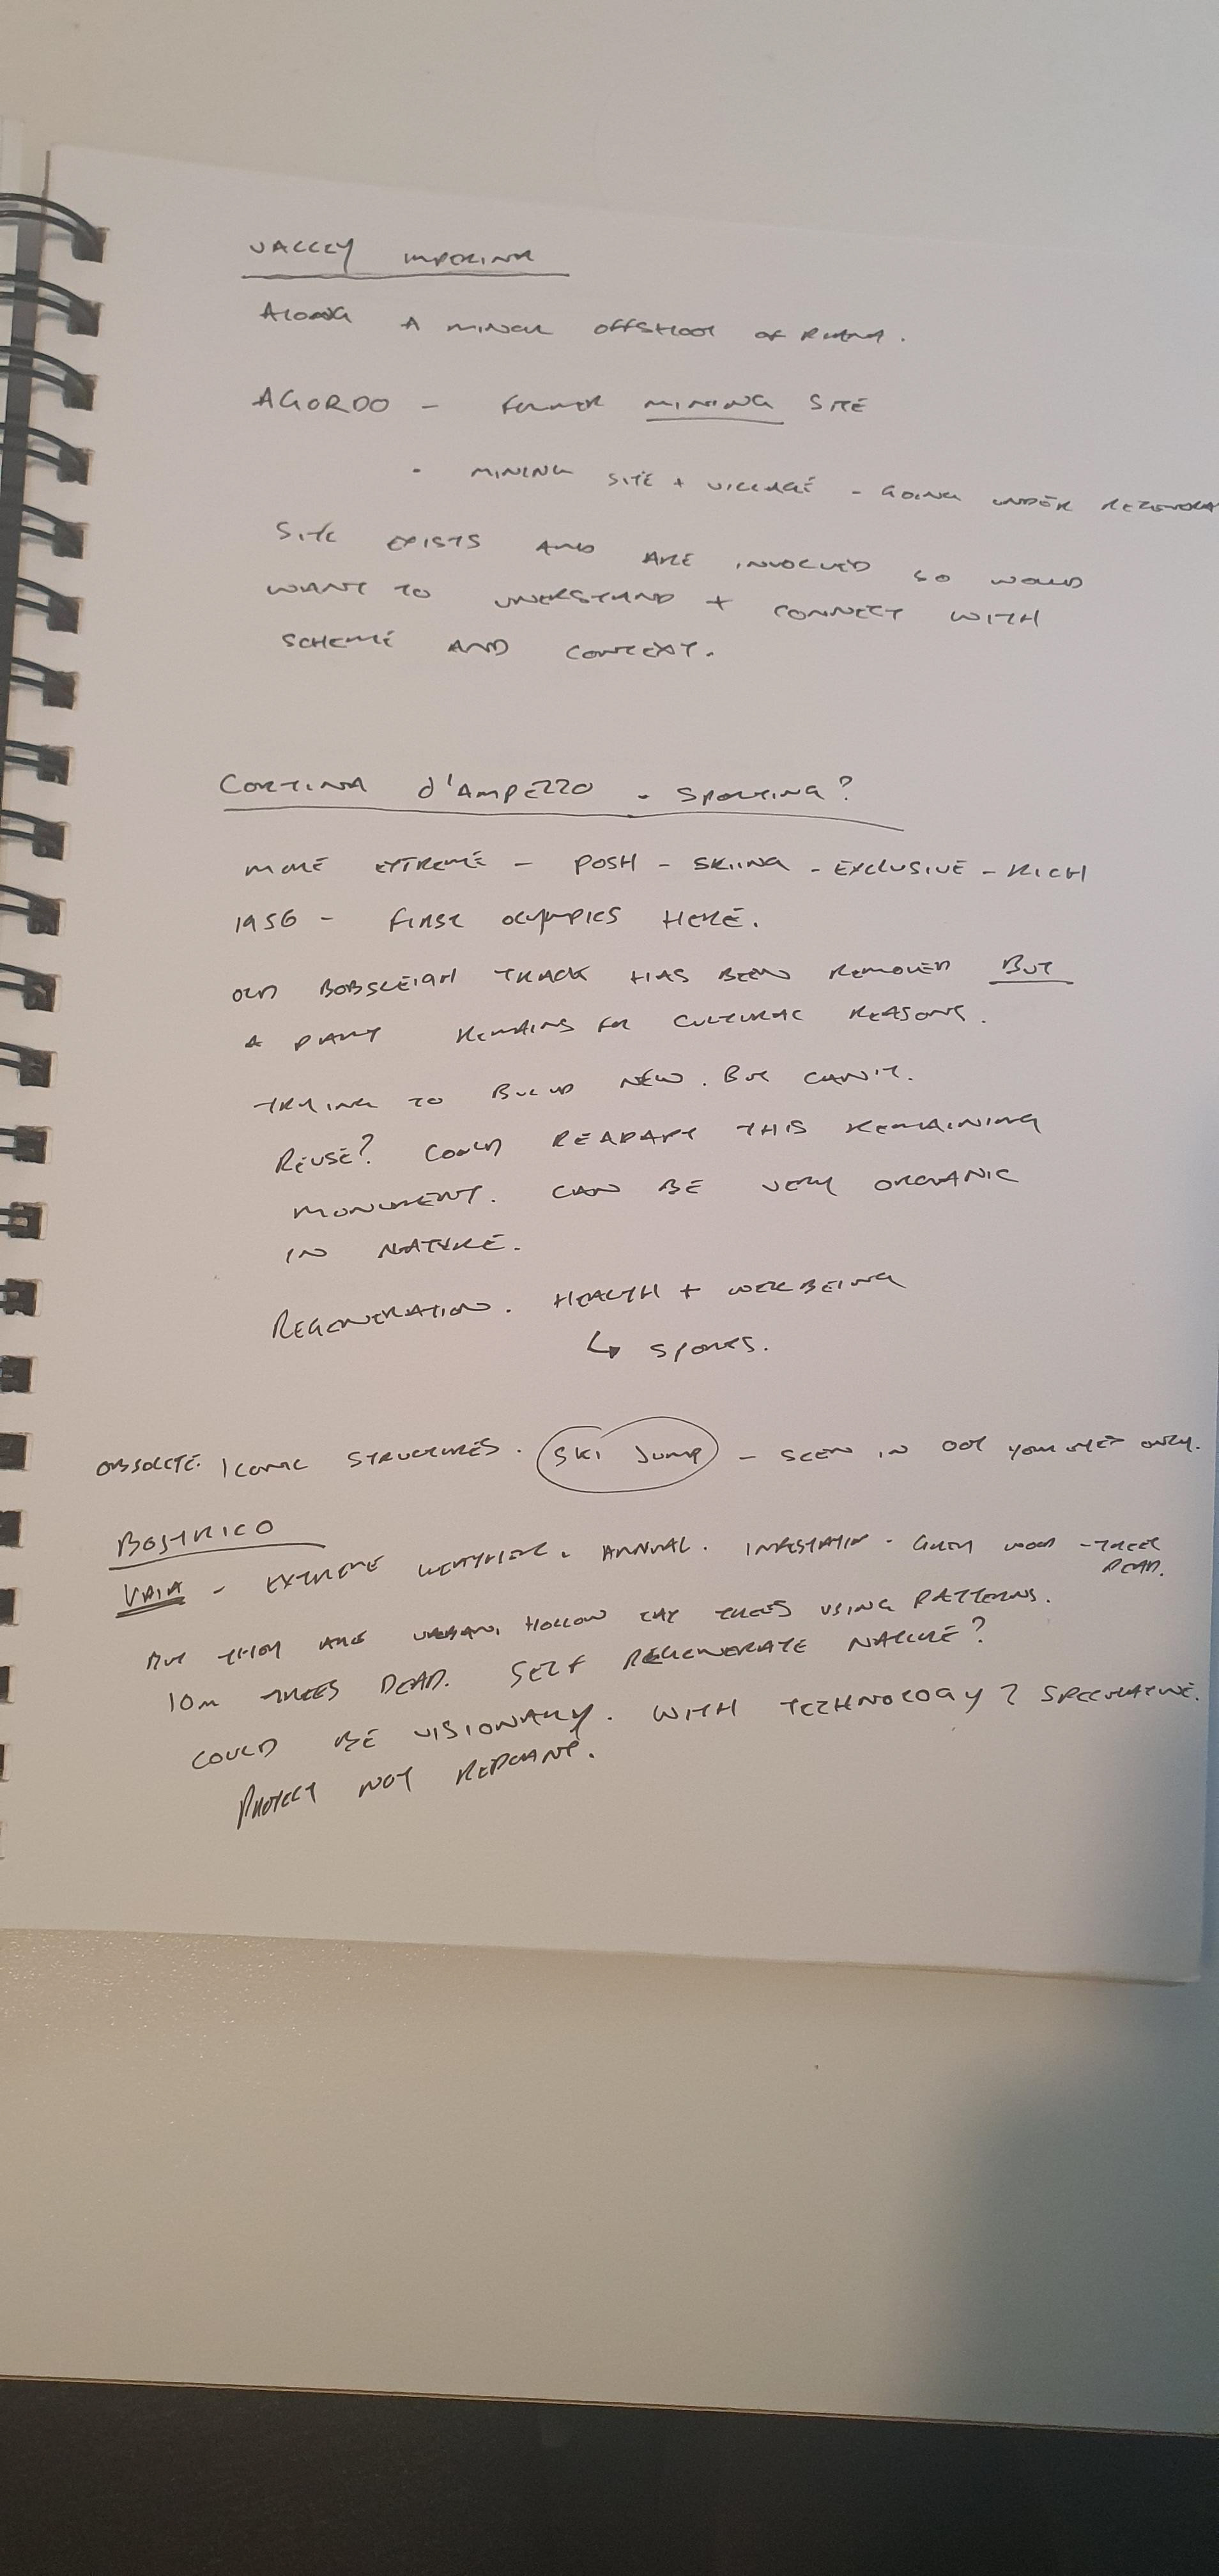 VALLEY IMPERINA
ALONG A MINOR OFFSHOOT OF
AGORDO - FORMER MINING SITE
• MINING SITE + VILLAGE - GOING UNDER
SITE EXISTS AND ARE INVOLVED SO WOULD
WANT TO UNERSTAND + CONNECT WITH
SCHEME AND CONTEXT.
CORTINA d'AMPEZZO - SPORTING?
MORE EXTREME - POSH - SKIING - EXCLUSIVE - RICH
1956 - FIRST OLYMPICS HERE.
OLD BOBSLEIGH TRACK HAS BEEN REMOVED BUT
A PART REMAINS FOR CULTURAL REASONS.
TRYING TO BUILD NEW. BUT CAN'T.
REUSE? COULD READAPT THIS REMAINING
MONUMENT. CAN BE VERY ORGANIC
IN NATURE.
REGENERATION. HEALTH + WELLBEING
↳ SPORTS.
OBSOLETE. ICONIC STRUCTURES. SKI JUMP - SEEN IN 007 YOUR EYES ONLY.
BOSTRICO
VAIA - EXTREME WEATHER. ANNUAL. INFESTATION - WOOD - TREES
DEAD.
BUT THEY ARE HOLLOW THE TREES USING PATTERNS.
10m TREES DEAD. SELF REGENERATE NATURE?
COULD BE VISIONARY. WITH TECHNOLOGY? SPECULATIVE.
PROTECT NOT REPLANT.